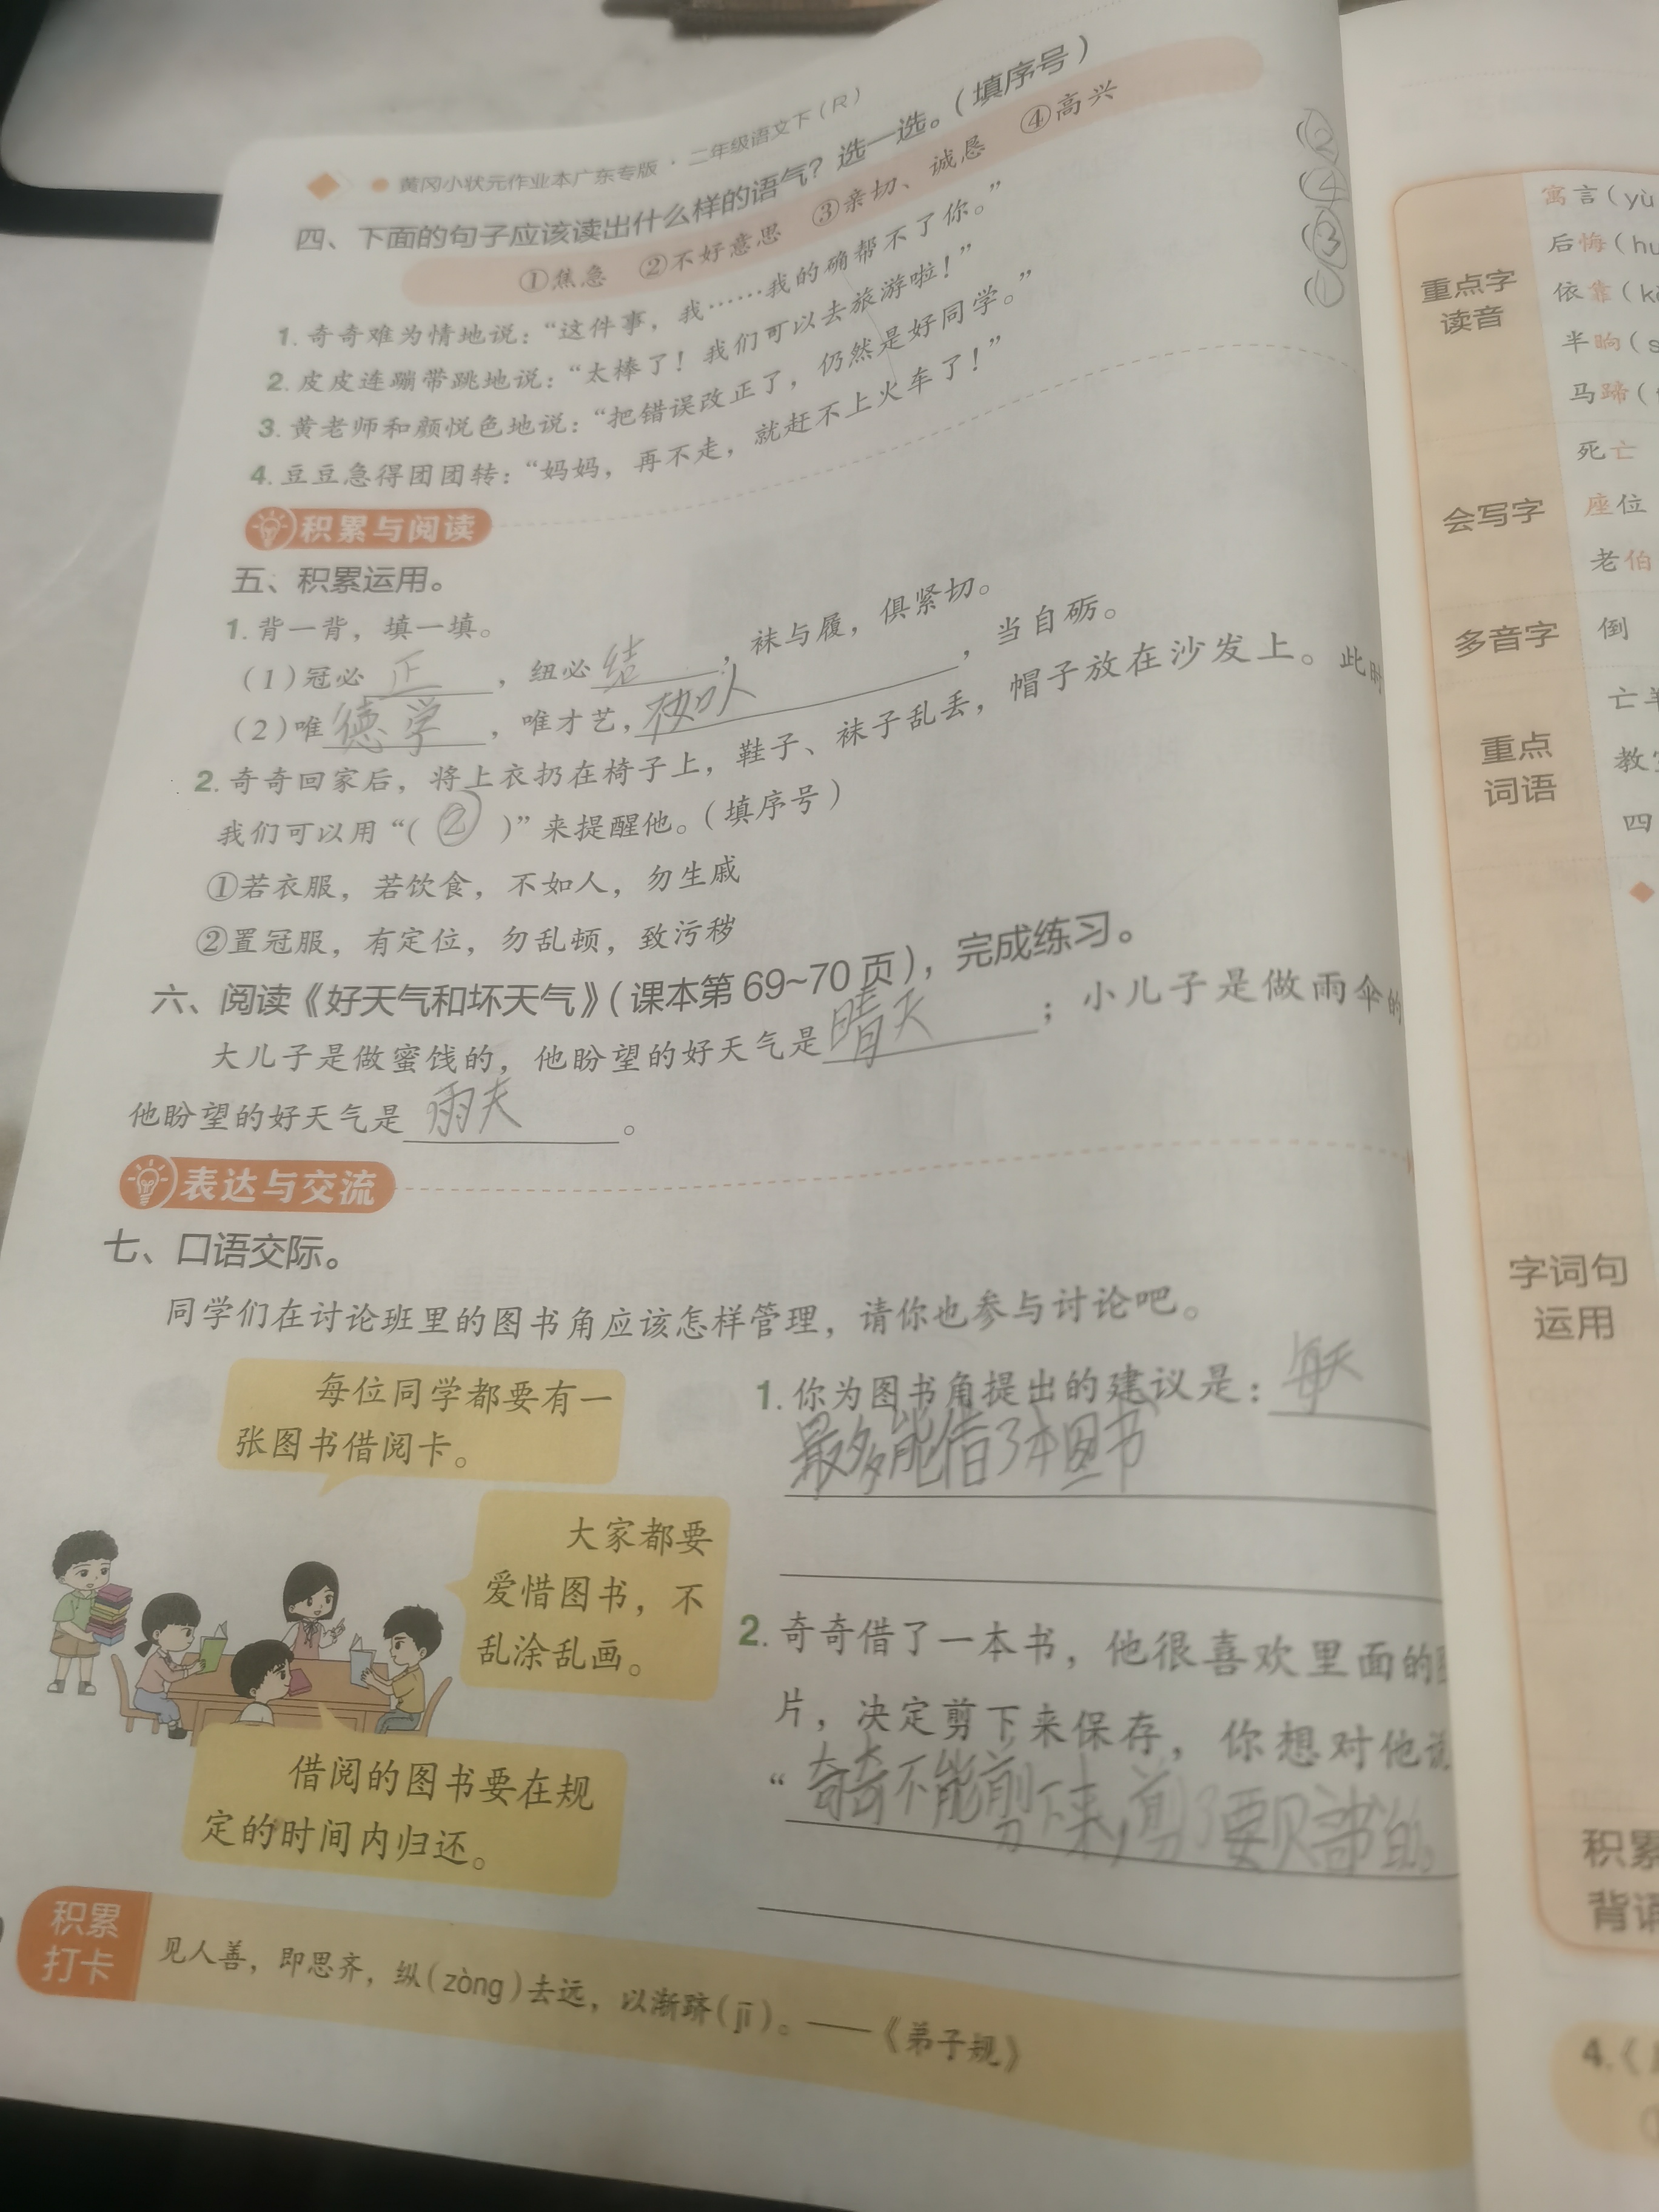 黄冈小状元作业本广东专版·二年级语文下（R）
四、下面的句子应该读出什么样的语气？选一选。（填序号）
①焦急 ②不好意思 ③亲切、诚恳 ④高兴
1. 奇奇难为情地说：“这件事，我……我的确帮不了你。” （②）
2. 皮皮连蹦带跳地说：“太棒了！我们可以去旅游啦！” （④）
3. 黄老师和颜悦色地说：“把错误改正了，仍然是好同学。” （③）
4. 豆豆急得团团转：“妈妈，再不走，就赶不上火车了！” （①）
积累与阅读
五、积累运用。
1. 背一背，填一填。
（1）冠必 正 ，纽必 结 ，袜与履，俱紧切。
（2）唯 德学 ，唯才艺，不如人 ，当自砺。
2. 奇奇回家后，将上衣扔在椅子上，鞋子、袜子乱丢，帽子放在沙发上。此时
我们可以用“（ ② ）”来提醒他。（填序号）
①若衣服，若饮食，不如人，勿生戚
②置冠服，有定位，勿乱顿，致污秽
六、阅读《好天气和坏天气》（课本第 69~70 页），完成练习。
大儿子是做蜜饯的，他盼望的好天气是 晴天 ；小儿子是做雨伞的
他盼望的好天气是 雨天 。
表达与交流
七、口语交际。
同学们在讨论班里的图书角应该怎样管理，请你也参与讨论吧。
每位同学都要有一
张图书借阅卡。
大家都要
爱惜图书，不
乱涂乱画。
借阅的图书要在规
定的时间内归还。
1. 你为图书角提出的建议是：每天
最多能借3本图书
2. 奇奇借了一本书，他很喜欢里面的
片，决定剪下来保存，你想对他说
“奇奇不能剪下来，剪了要
积累
打卡
见人善，即思齐，纵（zòng）去远，以渐跻（jī）。——《弟子规》
重点字
读音
寓言（yù
后悔（hu
依靠（k
半晌（s
马蹄（
会写字
死亡
座位
老伯
多音字
倒
重点
词语
亡羊
教室
四
字词句
运用
积累
背诵
4.《